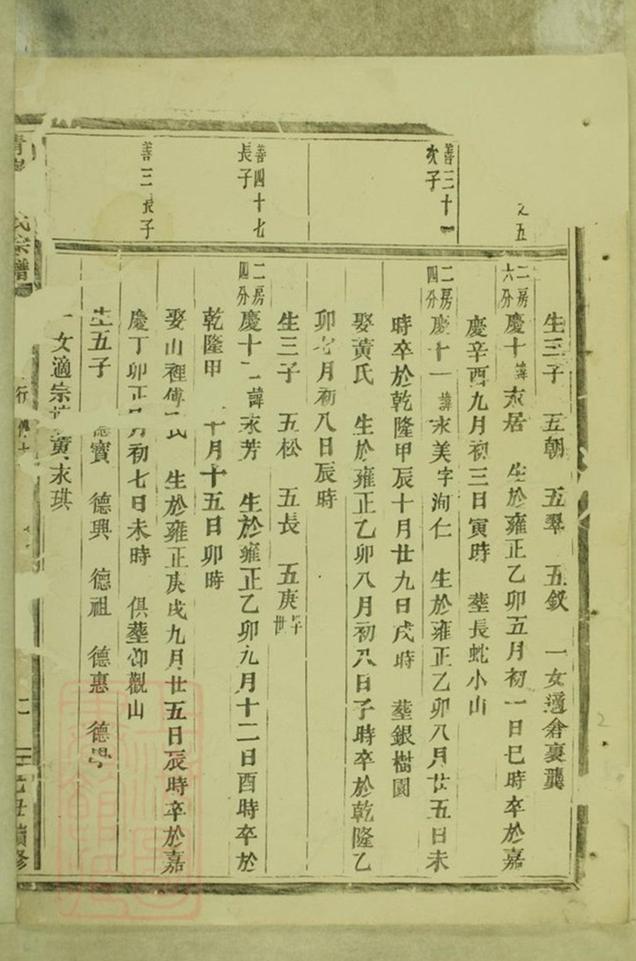 之五
生三子 五朝 五羣 五釵 一女適倉裏龔
二房六分慶十 諱永居 生於雍正乙卯五月初一日巳時卒於嘉
慶辛酉九月初三日寅時 塟長蛇小山
善三十一次子
二房四分慶十一 諱永美字洵仁 生於雍正乙卯八月廿五日未
時卒於乾隆甲辰十月廿九日戌時 塟銀樹園
娶黃氏 生於雍正乙卯八月初八日子時卒於乾隆乙
卯七月初八日辰時
生三子 五松 五長 五庚
善四十七長子
二房四分慶十二 諱永芳 生於雍正乙卯九月十二日酉時卒於
乾隆甲 十月十五日卯時
娶山裡傅氏 生於雍正庚戌九月廿五日辰時卒於嘉
善三 長子
慶丁卯正月初七日未時 俱塟仰觀山
生五子 德寳 德興 德祖 德惠 德學
一女適宗 黃永琪
氏宗譜
行
二
乙丑續修